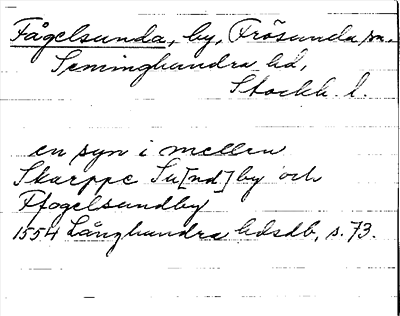 Fågelsunda, by, Frösunda sn.
Seminghundra hd,
Stockh. l.
en syn i mellen
Skarppe Su[nd]by och
Ffogelsundby
1554 Långhundra hdsdb, s. 73.